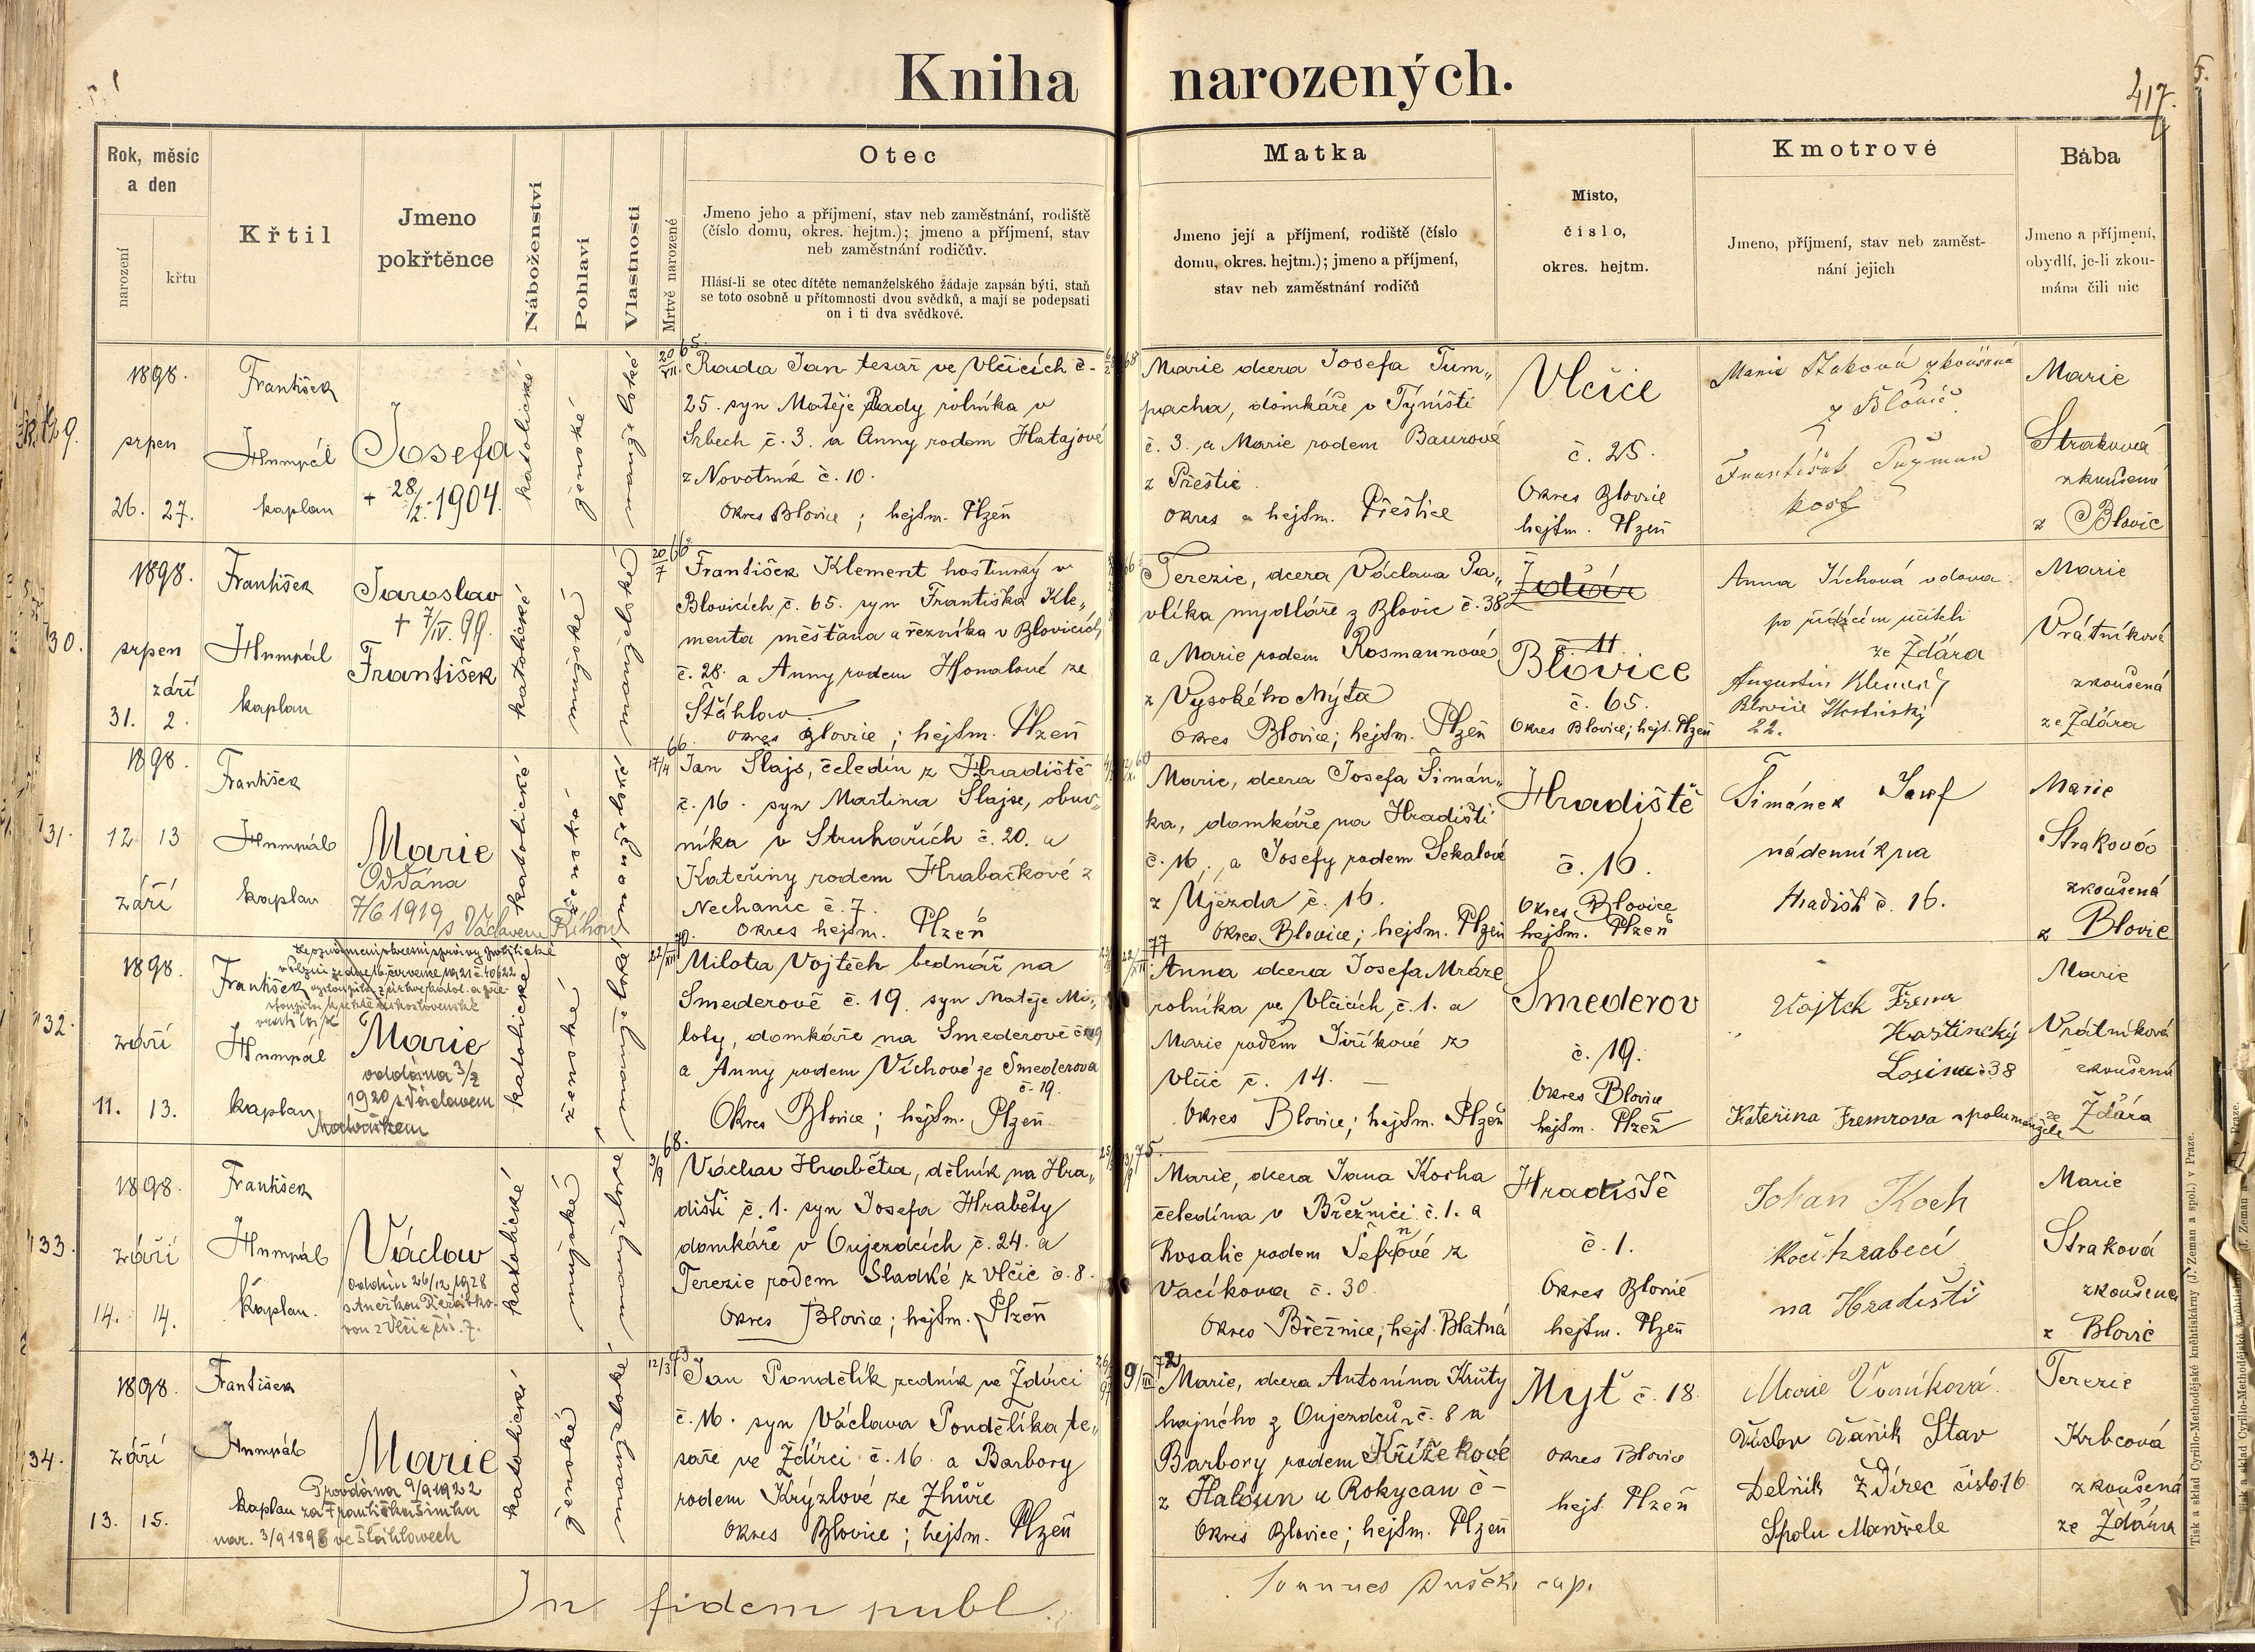 Kniha narozených.
417.
Rok, měsíc
a den
narození
křtu
Křtil
Jmeno
pokřtěnce
Náboženství
Pohlaví
Vlastnosti
Mrtvě narozené
Otec
Jmeno jeho a příjmení, stav neb zaměstnání, rodiště
(číslo domu, okres. hejtm.); jmeno a příjmení, stav
neb zaměstnání rodičův.
Hlásí-li se otec dítěte nemanželského žádaje zapsán býti, staň
se toto osobně u přítomnosti dvou svědků, a mají se podepsati
on i ti dva svědkové.
Matka
Jmeno její a příjmení, rodiště (číslo
domu, okres. hejtm.); jmeno a příjmení,
stav neb zaměstnání rodičů
Místo,
číslo,
okres. hejtm.
Kmotrové
Jmeno, příjmení, stav neb zaměst-
nání jejich
Bába
Jmeno a příjmení,
obydlí, je-li zkou-
mána čili nic
29.
1898.
srpen
26. 27.
František
Humpál
kaplan
Josefa
+ 28/2. 1904.
katolické
ženské
manželské
Rada Jan tesař ve Vlčicích č.
25. syn Matěje Rady rolníka v
Srbech č. 3. a Anny rodem Hatajové
z Novotník č. 10.
Okres Blovice; hejtm. Plzeň
Marie dcera Josefa Tum„
pacha, domkáře v Týništi
č. 3. a Marie rodem Baurové
z Přeštic
okres a hejtm. Přeštice
Vlčice
č. 25.
Okres Blovice
hejtm. Plzeň
Marie zkoušená
z Blovic
František
Marie
Straková
zkoušená
z Blovic
30.
1898.
srpen
září
31. 2.
František
Humpál
kaplan
Jaroslav
+ 7/IV. 99.
František
katolické
mužské
manželské
František Klement hostinský v
Blovicích č. 65. syn Františka Kle„
menta měšťana a řezníka v Blovicích
č. 28. a Anny rodem Honalové ze
Štáhlav
okres Blovice; hejtm. Plzeň
Terezie, dcera Václava Pa„
vlíka mydláře z Blovic č. 38
a Marie rodem Rosmannové
z Vysokého Mýta
Okres Blovice; hejtm. Plzeň
č. 11
Blovice
č. 65.
Okres Blovice; hejt. Plzeň
Anna Jíchová vdova
po řídícím učiteli
ze Žďára
Augustin Klement
Blovice Hostinský
22.
Marie
Vrátníková
zkoušená
ze Žďára
31.
1898.
12 13
září
František
Humpál
kaplan
Marie
Oddána
7/6 1919
s Václavem Říhou
katolické
ženské
manželské
Jan Šlajs, čeledín z Hradiště
č. 16. syn Martina Šlajse, obuv„
níka v Struhařích č. 20. a
Kateřiny rodem Hrabačkové z
Nechanic č. 7.
okres hejtm. Plzeň
Marie, dcera Josefa Šimán„
ka, domkáře na Hradišti
č. 16. a Josefy rodem Sekalové
z Újezda č. 16.
Okres Blovice; hejtm. Plzeň
Hradiště
č. 16.
Okres Blovice
hejtm. Plzeň
Šimánek Josef
nádenník na
Hradišt č. 16.
Marie
Straková
zkoušená
z Blovic
32.
1898.
září
11. 13.
František
Humpál
kaplan
Marie
oddána 3/2
1920 s Václavem
katolické
ženské
manželské
Milota Vojtěch bednář na
Smederově č. 19. syn Matěje Mi„
loty, domkáře na Smederově č. 19
a Anny rodem Víchové ze Smederova
č. 19.
Okres Blovice; hejtm. Plzeň
Anna dcera Josefa Mráze
rolníka ve Vlčicích č. 1. a
Marie rodem Jiříkové z
Vlčic č. 14.
Okres Blovice; hejtm. Plzeň
Smederov
č. 19.
Okres Blovice
hejtm. Plzeň
Vojtěch Fremr
Hostinský
Losina č. 38
Kateřina Fremrova spolumanželé
Marie
Vrátníková
zkoušená
ze Žďára
33.
1898.
září
14. 14.
František
Humpál
kaplan.
Václav
Oddán 26/12 1928
katolické
mužské
manželské
Václav Hraběta, dělník na Hra„
dišti č. 1. syn Josefa Hraběty
domkáře v Oujezdcích č. 24. a
Terezie rodem Sladké z Vlčic č. 8.
Okres Blovice; hejtm. Plzeň
Marie, dcera Jana Kocha
čeledína v Březnici č. 1. a
Rosalie rodem
Vacíkova č. 30.
Okres Březnice; hejt. Blatná
Hradiště
č. 1.
Okres Blovice
hejtm. Plzeň
Johan Koch
kočí hrabecí
na Hradišti
Marie
Straková
zkoušena
z Blovic
34.
1898.
září
13. 15.
František
Humpál
kaplan
Marie
Provdána 9/9 1922
za Františka Šimka
nar. 3/9 1898 ve Štáhlavech
katolické
ženské
manželské
Jan Pondělík zedník ve Ždírci
č. 16. syn Václava Pondělíka te„
saře ve Ždírci č. 16 a Barbory
rodem Krýzlové ze Zhůře
Okres Blovice; hejtm. Plzeň
Marie, dcera Antonína Kruty
hajného z Oujezdců č. 8 a
Barbory rodem Křížekové
z Haloun u Rokycan č –
Okres Blovice; hejtm. Plzeň
Myť č. 18.
okres Blovice
hejt. Plzeň
Marie Vaníková.
Václav Vaník Stav
Delnik Zdírec číslo 16
Spolu Manžele
Terezie
Krbcová
zkoušená
ze Žďára
In fidem publ.
Joannes Dušek, cap.
Tisk a sklad Cyrillo-Methodějské kněhtiskárny (J. Zeman a spol.) v Praze.